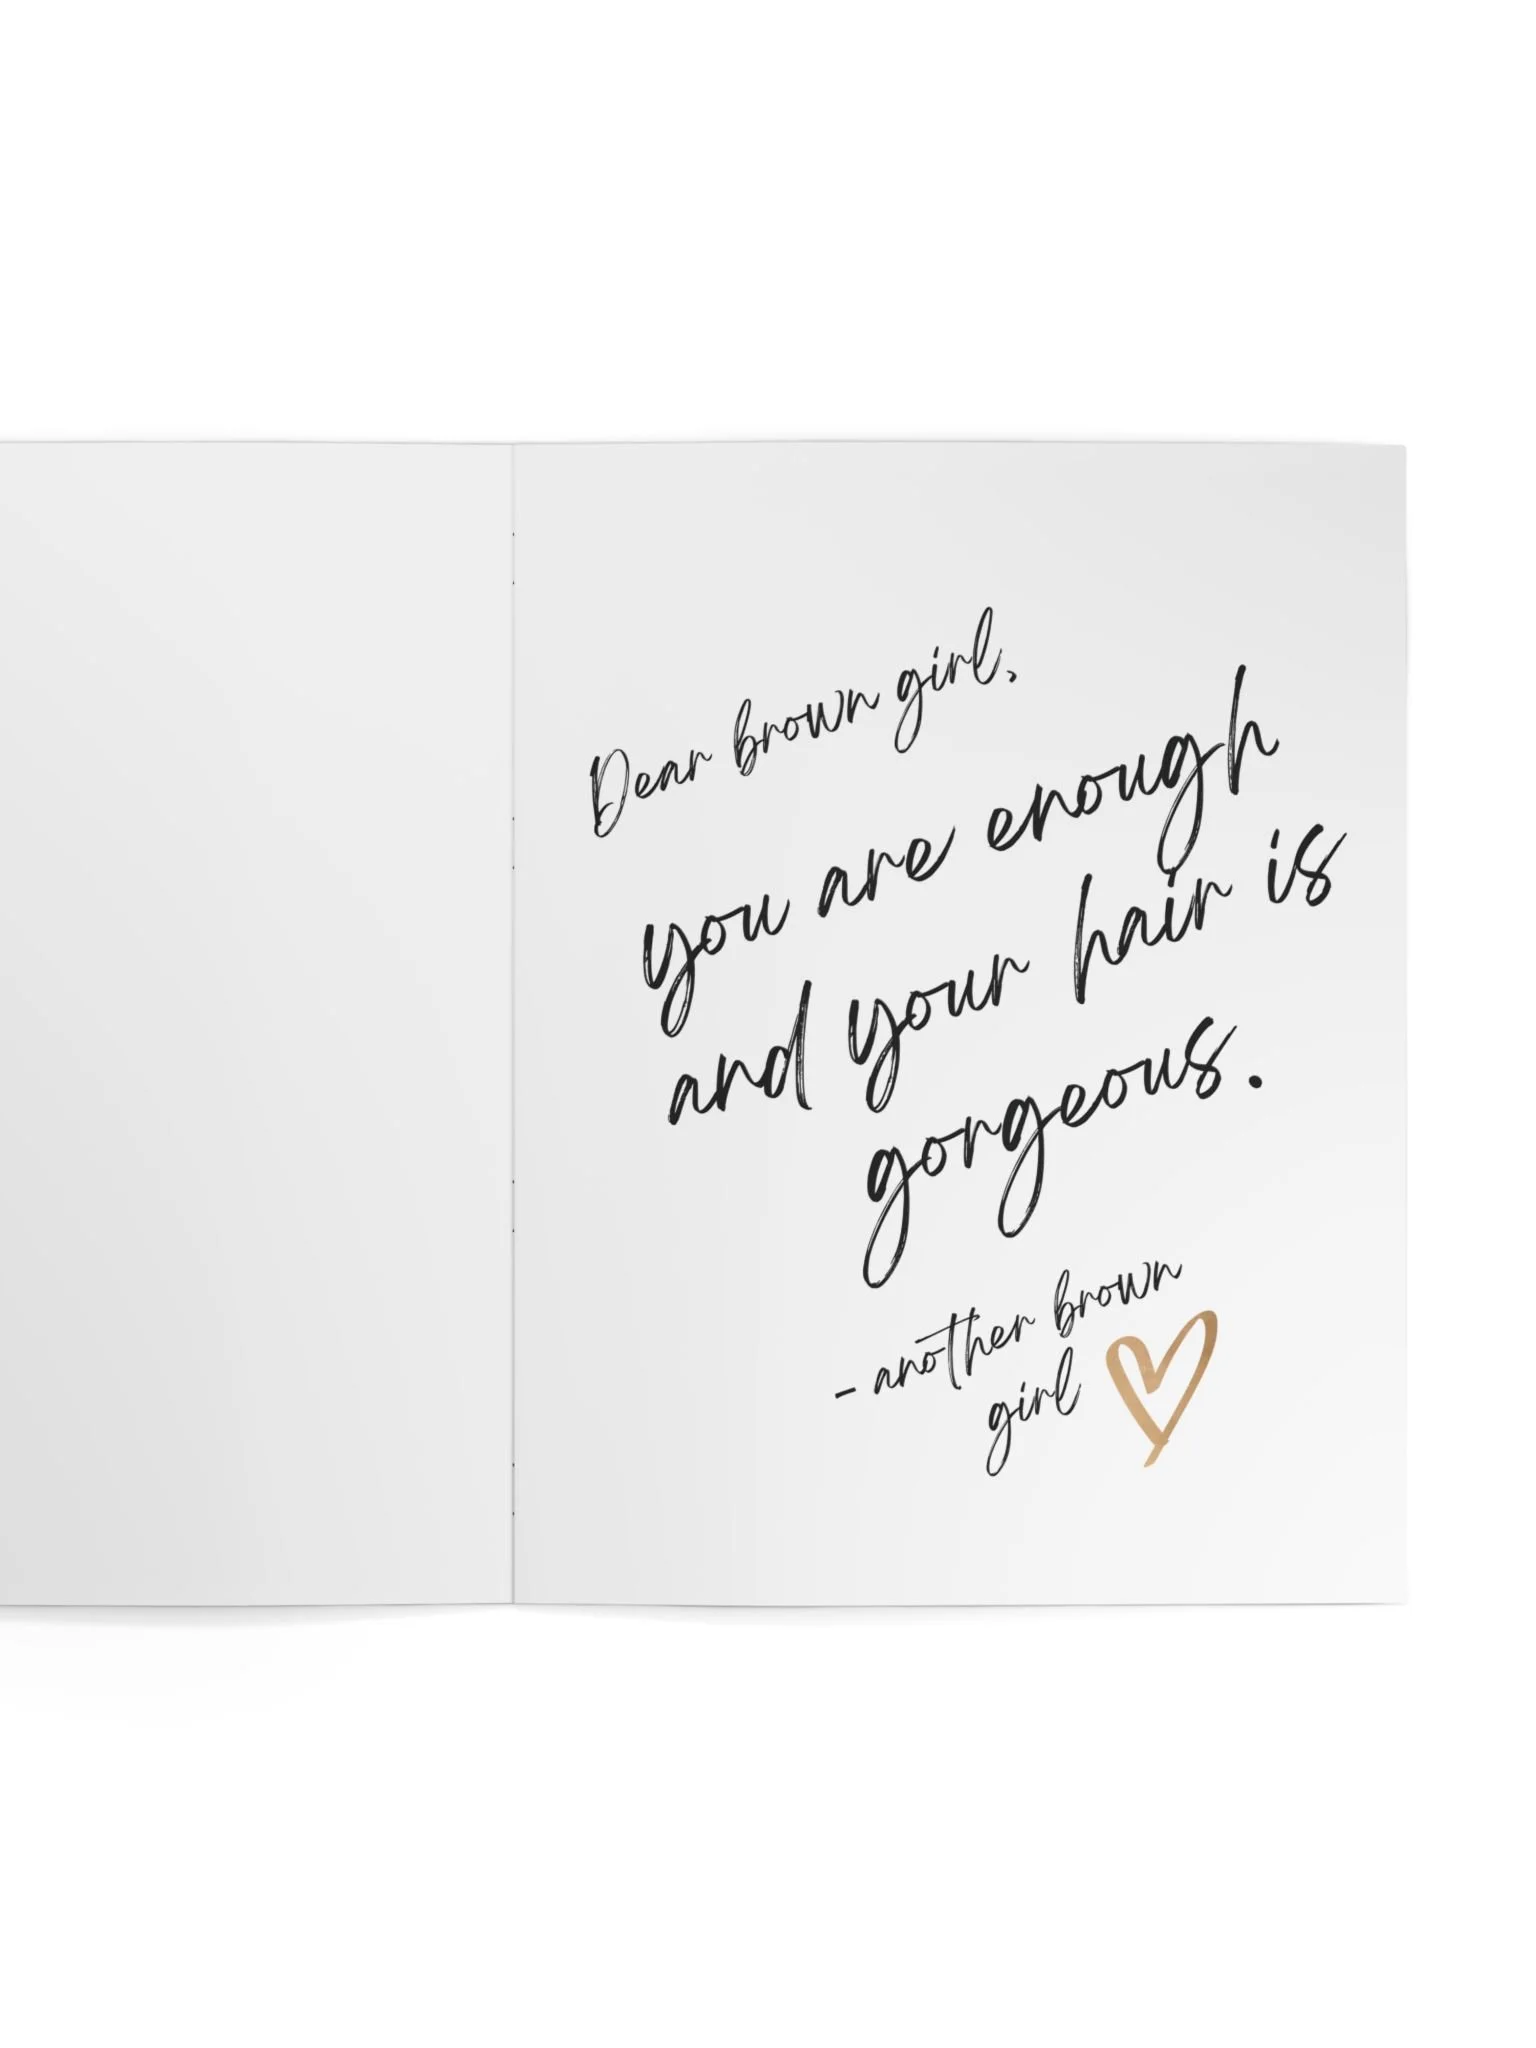 Dear brown girl,
you are enough
and your hair is
gorgeous.
- another brown
girl